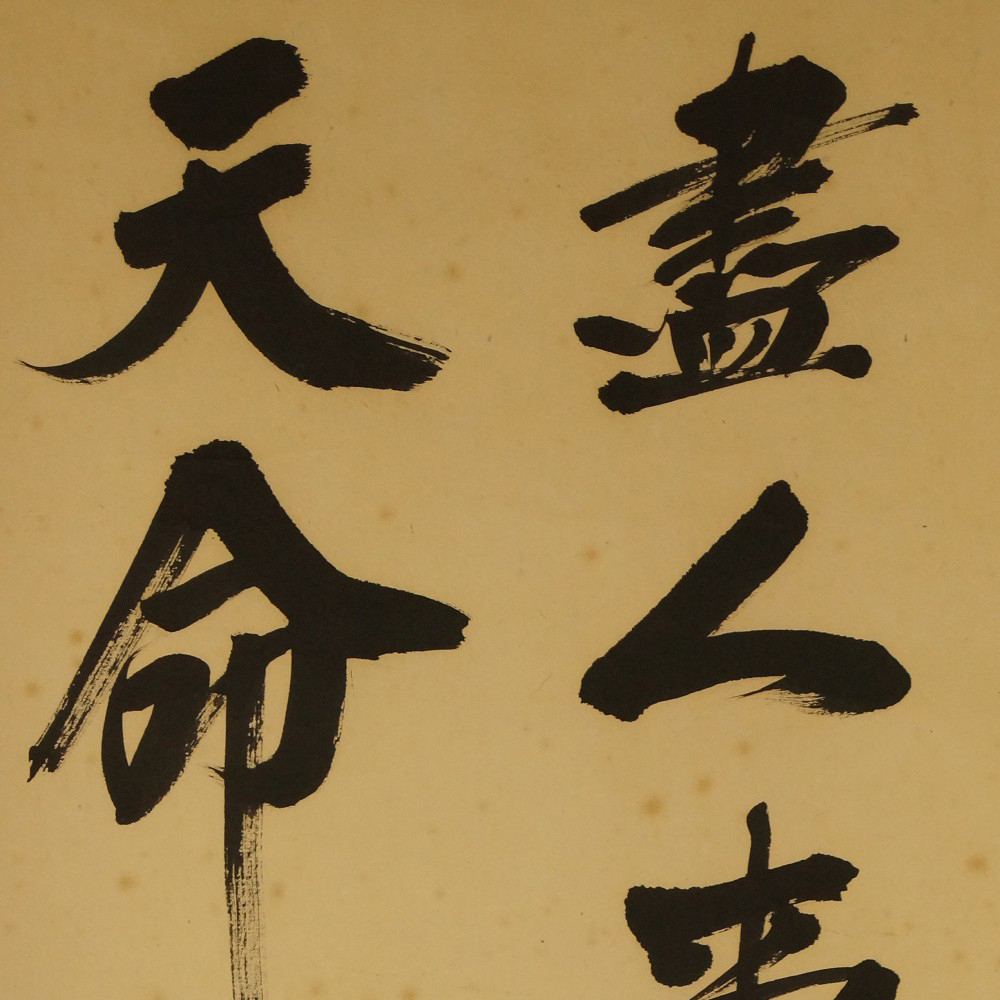 盡人事
天命